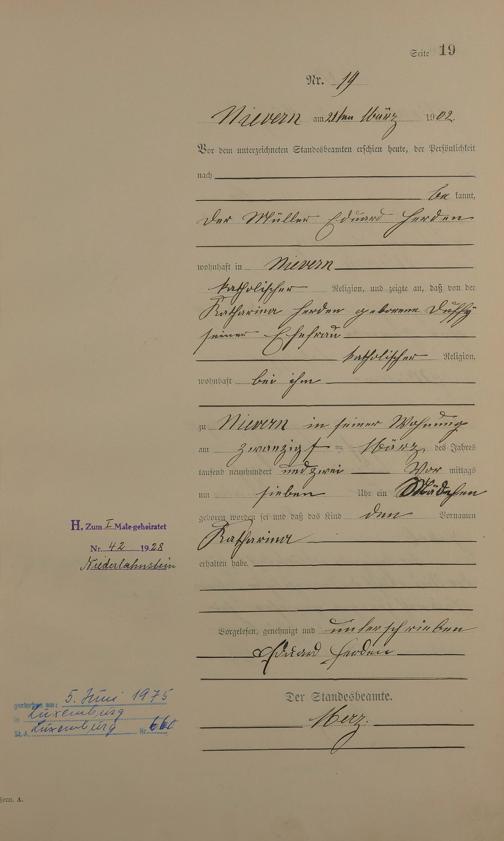 Seite 19
Nr. 19
Nievern am 21ten März 1902
Vor dem unterzeichneten Standesbeamten erschien heute, der Persönlichkeit
nach
be kannt,
der Müller Eduard Herden
wohnhaft in Nievern
katholischer Religion, und zeigte an, daß von der
Katharina Herden geborene Duffy
seiner Ehefrau
katholischer Religion,
wohnhaft bei ihm
zu Nievern in seiner Wohnung
am zwanzigst = März des Jahres
tausend neunhundert und zwei Vor mittags
um sieben Uhr ein Mädchen
geboren worden sei und daß das Kind den Vornamen
Katharina
erhalten habe.
H. Zum I Male geheiratet
Nr. 42 1928
Niederlahnstein
Vorgelesen, genehmigt und unterschrieben
Eduard Herden
Der Standesbeamte.
Merz.
gestorben am: 5. Juni 1975
in Luxemburg
St.A. Luxemburg Nr. 660
Form. A.